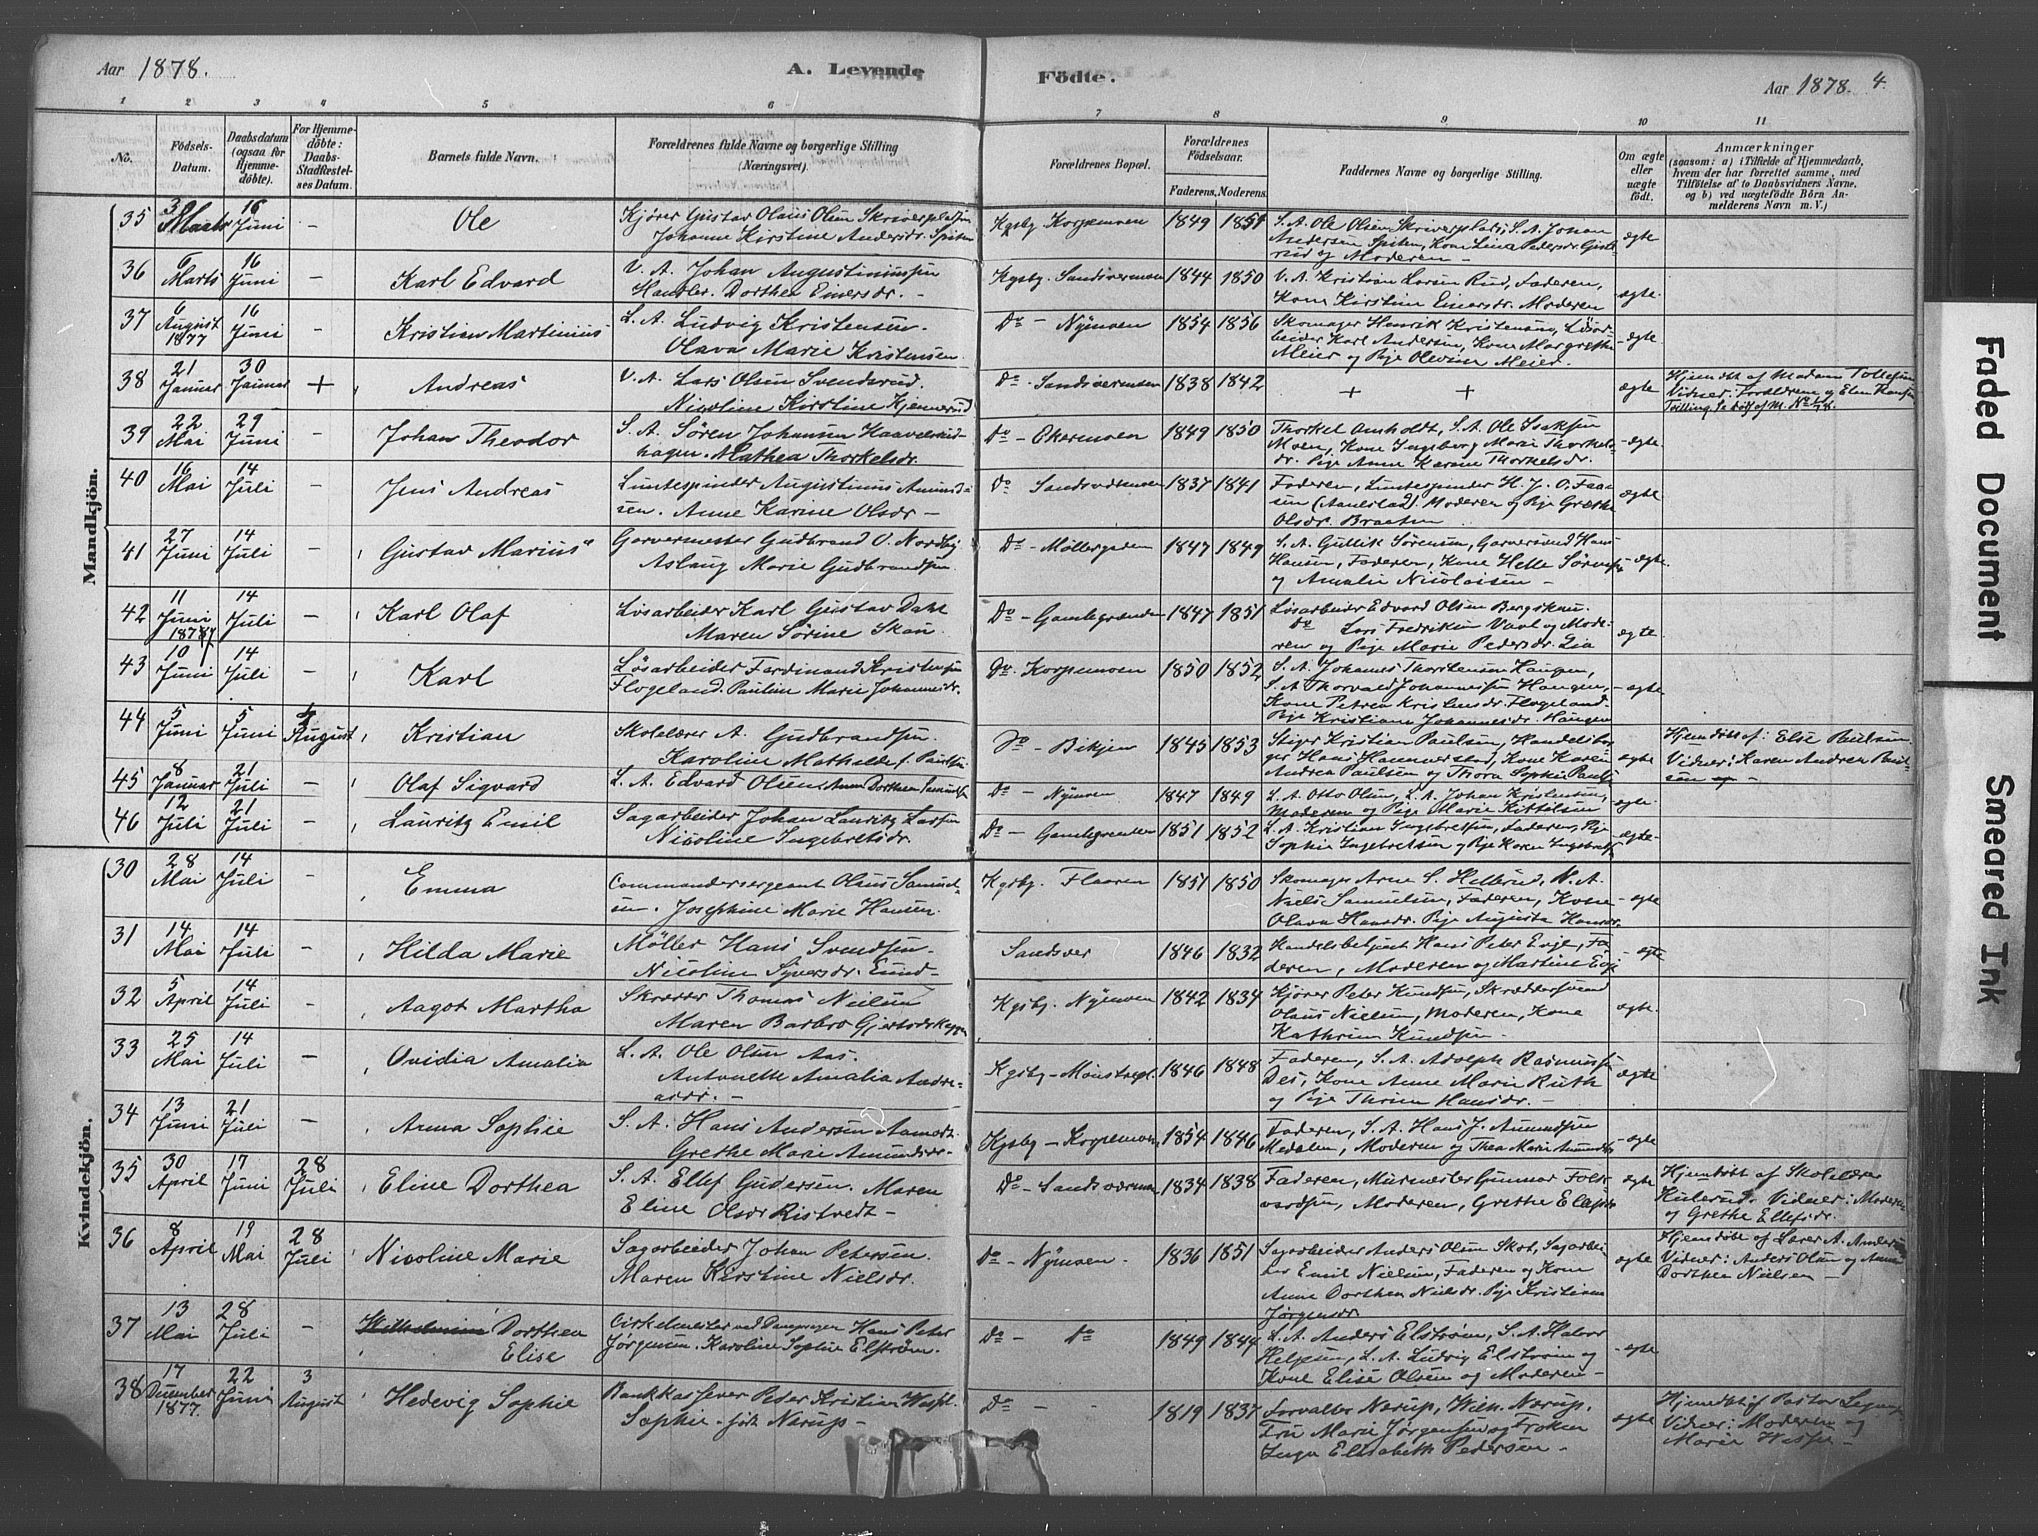 Aar 1878.
A. Levende
Födte.
Aar 1878. 4.
1 2 3 4 5 6 7 8 9 10 11
No.
Födsels-Datum.
Daabsdatum (ogsaa for Hjemme-döbte).
For Hjemme-döbte: Daabs-Stadfæstel-ses Datum.
Barnets fulde Navn.
Forældrenes fulde Navne og borgerlige Stilling (Næringsvei).
Forældrenes Bopæl.
Forældrenes Födselsaar.
Faderens. Moderens.
Faddernes Navne og borgerlige Stilling.
Om ægte eller uægte födt.
Anmærkninger
(saasom: a) i Tilfælde af Hjemmedaab,
hvem der har forrettet samme, med
Tilföielse af to Daabsvidners Navne,
og b) ved uægtefödte Börn An-
melderens Navn m. V.)
Mandkjön.
35 Marts 16 Juni - Ole
Kjører Gustav Olaus Olsen
Johanne Kirstine Andersdr.
Kgsby 1849 1851
S. A. Ole Olsen S. A. Johan
Andersen Kone Lina Pedersdr.
og Moderen - ægte
36 6 Marts 16 Juni - Karl Edvard
V. A. Johan
Dorthea Einersdr. -
Kgsby. 1844 1850
V. A. Kristian Larsen Rud, Faderen,
Kone Kirstine Einersdr. Moderen ægte
37 6 August 1877 16 Juni - Kristian Martinius
L. A. Ludvig Kristensen.
Olava Marie Kristensen
Do - Nÿmoen 1854 1856
Skomager Henrik Kristensen,
Karl Andersen, Kone
Meier og Pige Olevine Meier. - ægte
38 21 Januar 30 Januar + Andreas
V. A. Lars Olsen Svendsrud.
Nicoline Kirstine
Do - 1838 1842 + + ægte
Hjemdøbt af Madam
Vidner: Forældrene og
Tvilling
39 22 Mai 29 Juni - Johan Theodor
S. A. Sören Johansen
Mathea Thorkelsdr.
Do - 1849 1850
Thorkel S. A. Ole Isaksen
Moen, Kone Ingeborg Marie Thorkels-
dr. Pige Anne Karine Thorkelsdr. - ægte
40 16 Mai 14 Juli - Jens Andreas
Luntespinder Augustinus Amund-
sen. Anne Karine Olsdr -
Do 1837 1841
Faderen, Luntespinder H. J. O.
Moderen og Pige Grethe
Olsdr. Braaten ægte
41 27 Juni 14 Juli - Gustav Marius
Garvermester Gudbrand O. Nordby
Aslaug Marie Gudbrandsen.
Do - Møllergaden 1847 1849
S. A. Gullik Sørensen, Garversvend Hans
Hansen, Faderen, Kone Helle
og Amalie Nicolaisen - - ægte.
42 11 Juni 14 Juli - Karl Olaf
Løsarbeider Karl Gustav Dahl
Maren Sørine Skau
Do - Gamlegrænden 1847 1851
Løsarbeider Edvard Olsen
Do Lars Fredriksen og Mode-
ren og Pige Marie Pedersdr. Lia ægte
43 10 Juni 14 Juli - Karl
Løsarbeider Ferdinand Kristensen
Flogeland. Pauline Marie Johannesdr.
Do. 1850 1852
S. A. Johannes Thorstensen Haugen,
S. A. Thorvald Johannessen Haugen,
Kone Petrea Kristensdr. Flogeland.
Pige Kristiane Johannesdr. Haugen - ægte
44 5 Juni 5 Juni August Kristian
Skolelærer A. Gudbrandsen.
Karoline Mathilde f. Paulsen
Do - 1845 1853
Stiger Kristian Paulsen,
Hans Kone Karen
Andrea Paulsen og Thora Sophie ægte
Hjemdøbt af: Else Paulsen.
Vidner: Karen Andrea
45 8 Januar 21 Juli - Olaf Sigvard
L. A. Edvard Olsen
Do - Nÿmoen 1847 1849
L. A. Otto Olsen, L. A. Johan Kristensen,
Moderen og Pige Marie Kittilsen ægte.
46 12 Juli 21 Juli - Lauritz Emil
Sagarbeider Johan Lauritz Larsen
Nicoline Ingebretsdr.
Do - 1851 1852
L. A. Kristian Ingebretsen, Faderen, Pige
Sophie Ingebretsen og Pige Karen ægte-
Kvindekjön.
30 28 Mai 14 Juli - Emma
Commandersergeant Olaus Samuel-
sen. Josephine Marie Hansen.
Kgsby. Flaaren 1851 1850
Skomager Arne S. Hellerud,
Niels Samuelsen, Faderen, Kone
Olava Hansdr. Pige Augusta - ægte
31 14 Mai 14 Juli - Hilda Marie
Møller Hans Svendsen.
Nicoline Syversdr.
Sandsver 1846 1832
Hans Peter Evje, Fa-
deren, Moderen og Martine Evje - ægte
32 5 April 14 Juli - Aagot Martha
Skrædder Thomas Nielsen
Maren Barbro
Kgsby. Nÿmoen 1842 1834
Kjører Peter Knudsen, Skræddersvend
Olaus Nielsen, Moderen, Kone
Kathrine Knudsen - ægte.
33 25 Mai 14 Juli - Ovidia Amalia
L. A. Ole Olsen Aas.
Antonette Amalia Andre-
asdr. -
Kgsby - 1846 1848
Faderen, S. A. Adolph Rasmussen
Kone Anne Marie Ruth
og Pige Hansdr. - ægte
34 13 Juni 21 Juli - Anna Sophie
S. A. Hans Andersen
Grethe Marie Amundsdr-
Kgsby - 1854 1846
Faderen, S. A. Hans J. Amundsen
Medalen, Moderen og Thea Marie - ægte
35 30 April 17 Juni 28 Juli Eline Dorthea
S. A. Ellef Gudersen. Maren
Eline Olsdr
Do - 1834 1838
Faderen, Murmester Gunnar
Moderen, Grethe ægte
Hjemdøbt af Skolelærer
Vidner: Moderen
og Grethe Ellefsdr.
36 8 April 19 Mai 28 Juli Nicoline Marie
Sagarbeider Johan Petersen.
Maren Kirstine Nielsdr.
Do - Nÿmoen. 1836 1851
Sagarbeider Anders Olsen
Emil Nielsen, Faderen og Kone
Anne Dorthea Nielsdr. Pige Kristiane
Jørgensdr. ægte
Hjemdøbt af Lærer A.
Vidner: Anders Olsen og Anne
Dorthea Nielsen -
37 13 Mai 28 Juli - Wilhelmine Dorthea
Elise
Hans Peter
Jørgensen. Karoline Sophie Elstrøm.
Do - Do 1849 1844
L. A. Anders Elstrøm, S. A. Halvor
Helgesen, L. A. Ludvig Elstrøm og
Kone Elise Olsen og Moderen - - ægte
38 17 December 1877. 22 Juni 3 August Hedevig Sophie
Bankkasserer Peder Kristian
Sophie - født Nærup -
Do - - 1819 1837
Forvalter Nærup, Wilh. Nærup,
Fru Marie Jørgensen og Frøken
Inga Elisabeth Pedersen - ægte
Hjemdøbt af Pastor
Vidner: Moderen og
Marie
Faded Document
Smeared Ink